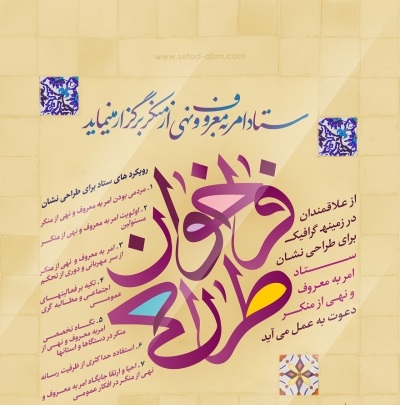 www.setad-abm.com
ستاد امر به معروف و نهی از منکر برگزار مینماید
فراخوان
طراحی
از علاقمندان
در زمینه گرافیک
برای طراحی نشان
ستاد
امر به معروف
و نهی از منکر
دعوت به عمل می آید
رویکرد های ستاد برای طراحی نشان
۱. مردمی بودن امر به معروف و نهی از منکر
۲. اولویت امر به معروف و نهی از منکر
مسئولین
۳. امر به معروف و نهی از منکر
از سر مهربانی و دوری از تحکم
۴. تکیه بر فعالیتهای
اجتماعی و مطالبه گری
عمومی
۵. نگاه تخصصی
امر به معروف و نهی از
منکر در دستگاه ها و استانها
۶. استفاده حداکثری از ظرفیت رسانه
۷. احیا و ارتقا جایگاه امر به معروف و
نهی از منکر در افکار عمومی